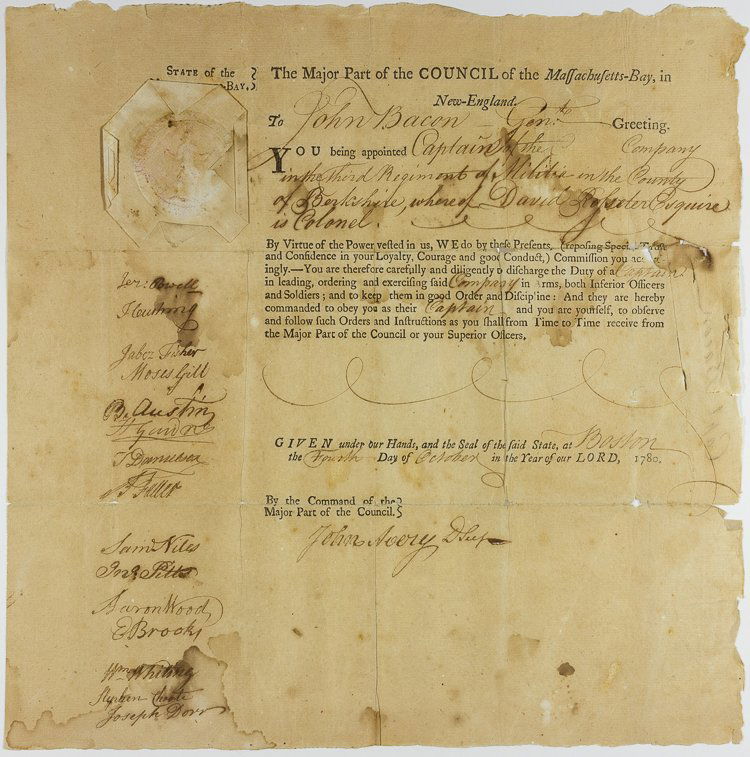 STATE of the
-BAY.
The Major Part of the COUNCIL of the Maſſachuſetts-Bay, in
New-England.
To John Bacon Gentn. Greeting.
YOU being appointed Captain of the Company
in the third Regiment of Militia in the County
of Berkshire, whereof David Roſseter Esquire
is Colonel.
By Virtue of the Power veſted in us, WE do by theſe Preſents, (repoſing Special Truſt
and Confidence in your Loyalty, Courage and good Conduct,) Commiſſion you accord
ingly.—You are therefore carefully and diligently to diſcharge the Duty of a Captain
in leading, ordering and exerciſing ſaid Company in Arms, both Inferior Officers
and Soldiers; and to keep them in good Order and Diſcipline: And they are hereby
commanded to obey you as their Captain and you are yourſelf, to obſerve
and follow ſuch Orders and Inſtructions as you ſhall from Time to Time receive from
the Major Part of the Council or your Superior Officers.
GIVEN under our Hands, and the Seal of the ſaid State, at Boston
the Fourth Day of October in the Year of our LORD, 1780.
By the Command of the
Major Part of the Council.
John Avery D Secy
Jer: Powell
Jabez Fisher
Moses Gill
B. Austin
H Gardner
T Danielson
N Feller
Saml Niles
Jno. Pitts
Aaron Wood
E Brooks
Wm Whiting
Stephen Choate
Joseph Dorr